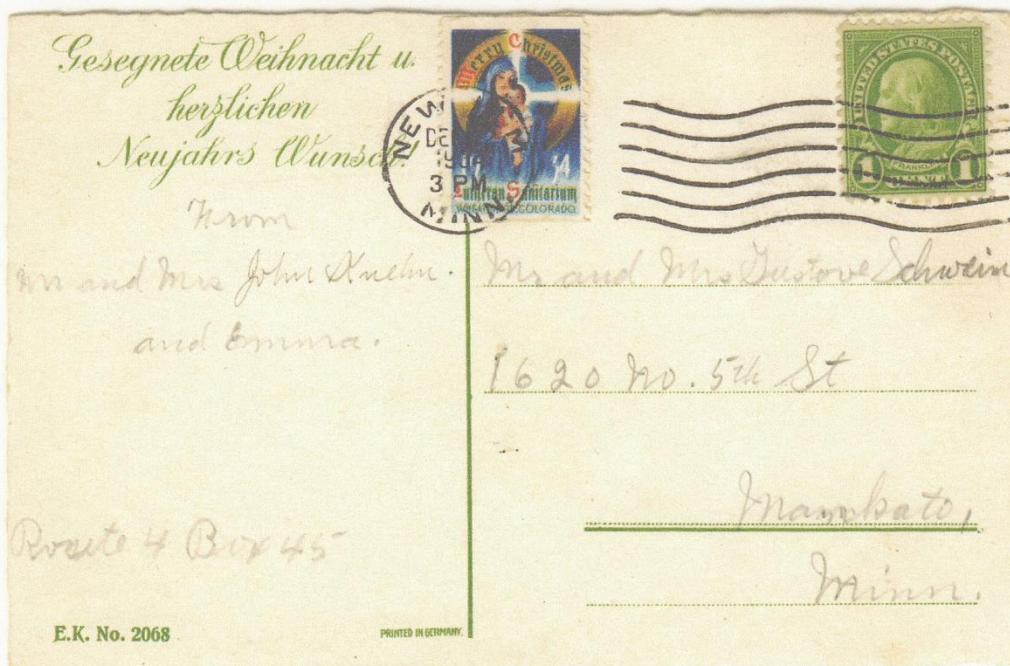 Gesegnete Weihnacht u.
herzlichen
Neujahrs Wunsch!
From
Mr and Mrs John Kuehn.
and Emma.
Route 4 Box 45
E.K. No. 2068
PRINTED IN GERMANY.
Merry Christmas
34
Lutheran Sanitarium
COLORADO.
NEW
DE
3 PM
MINN
UNITED STATES POSTAGE
1 1
Mr and Mrs Gustove Schwein
1620 No. 5th St
Mankato,
Minn.